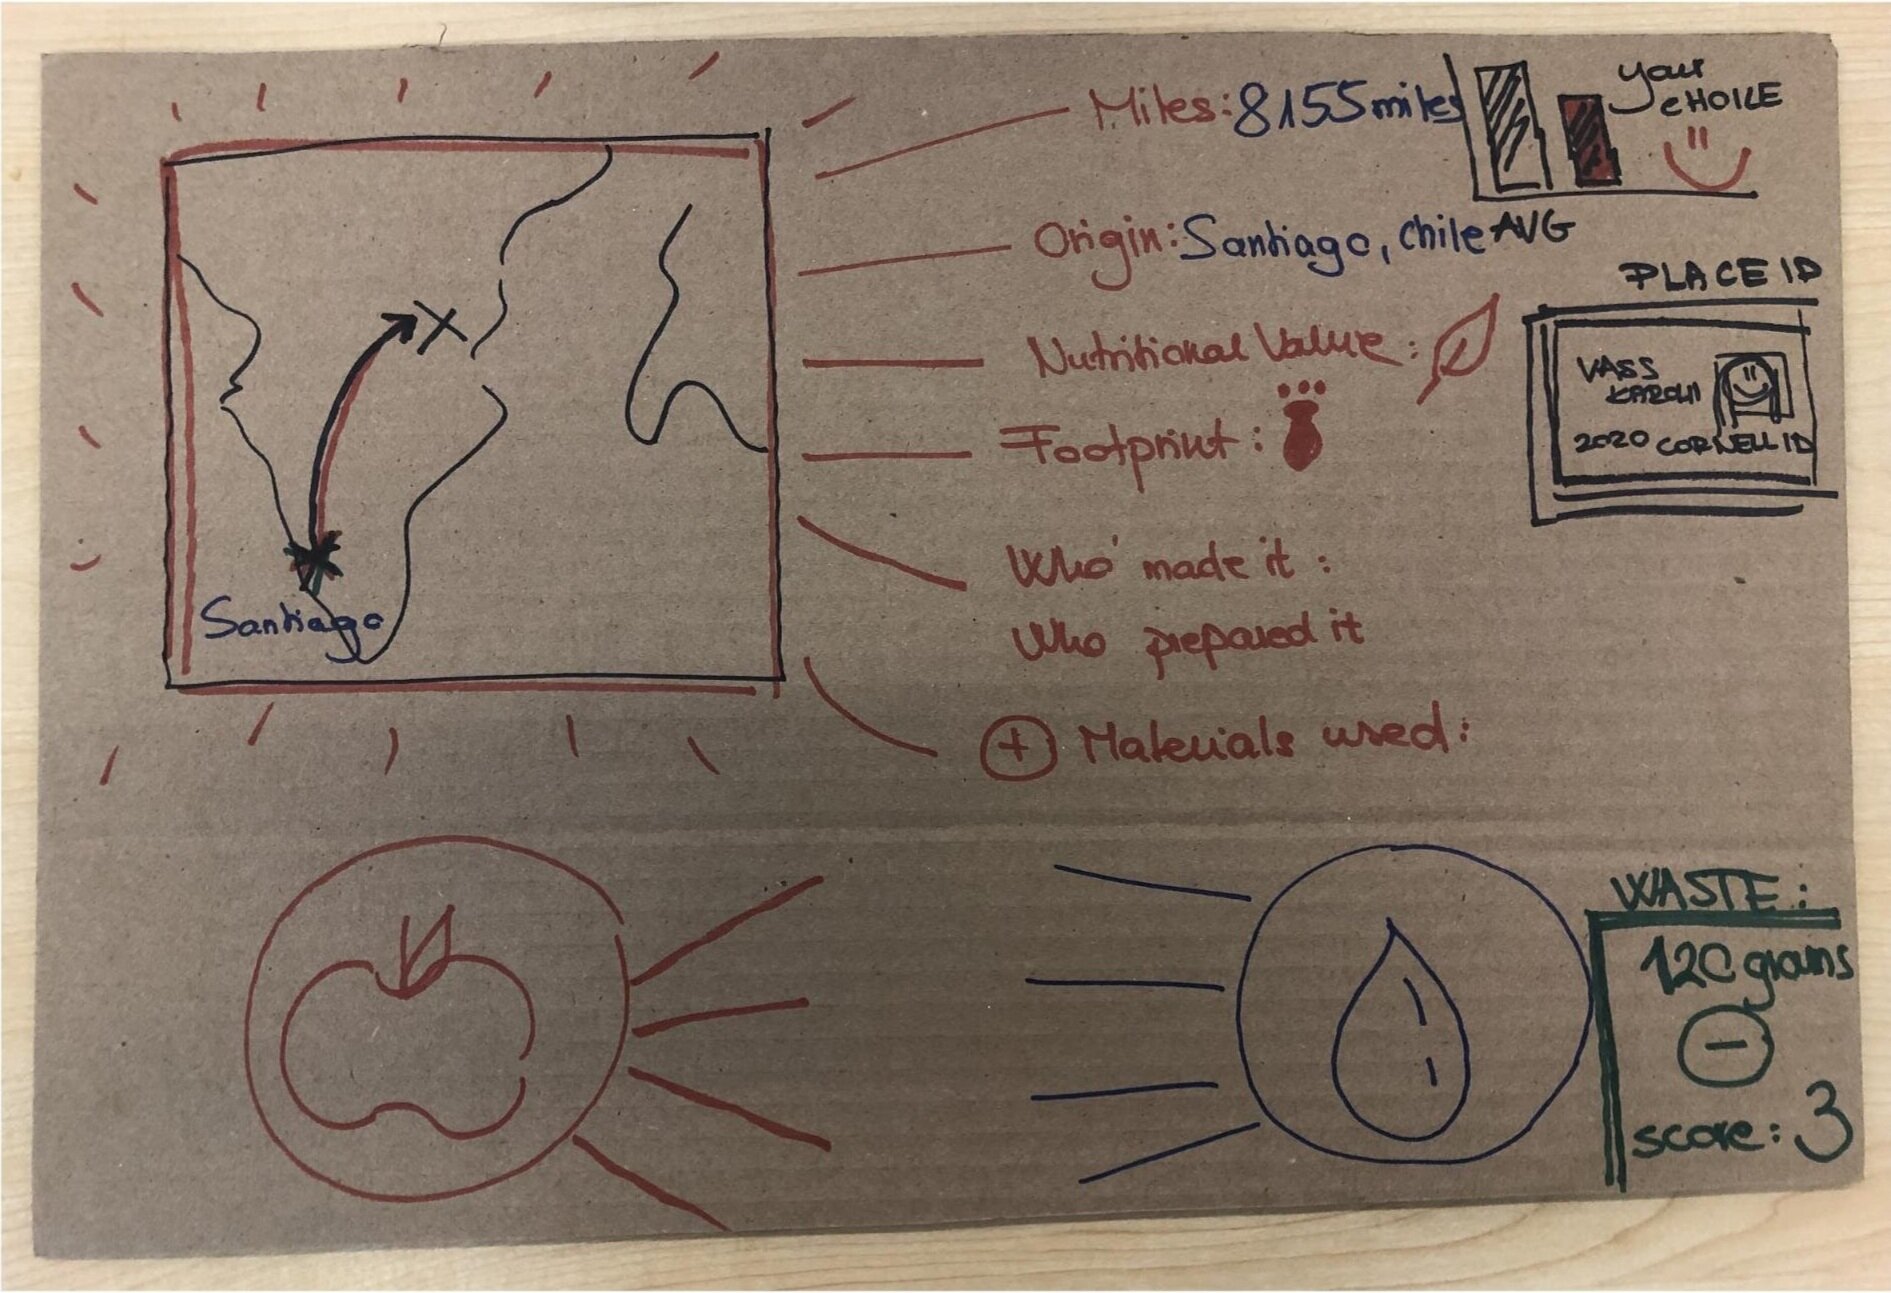 Miles: 8155 miles
your
CHOICE
Origin: Santiago, Chile
AVG
PLACE ID
Nutritional Value:
VASS
KAROLI
2020 CORNELL ID
Footprint:
Who made it:
Who prepared it
Santiago
+ Materials used:
WASTE:
120 grams
score: 3